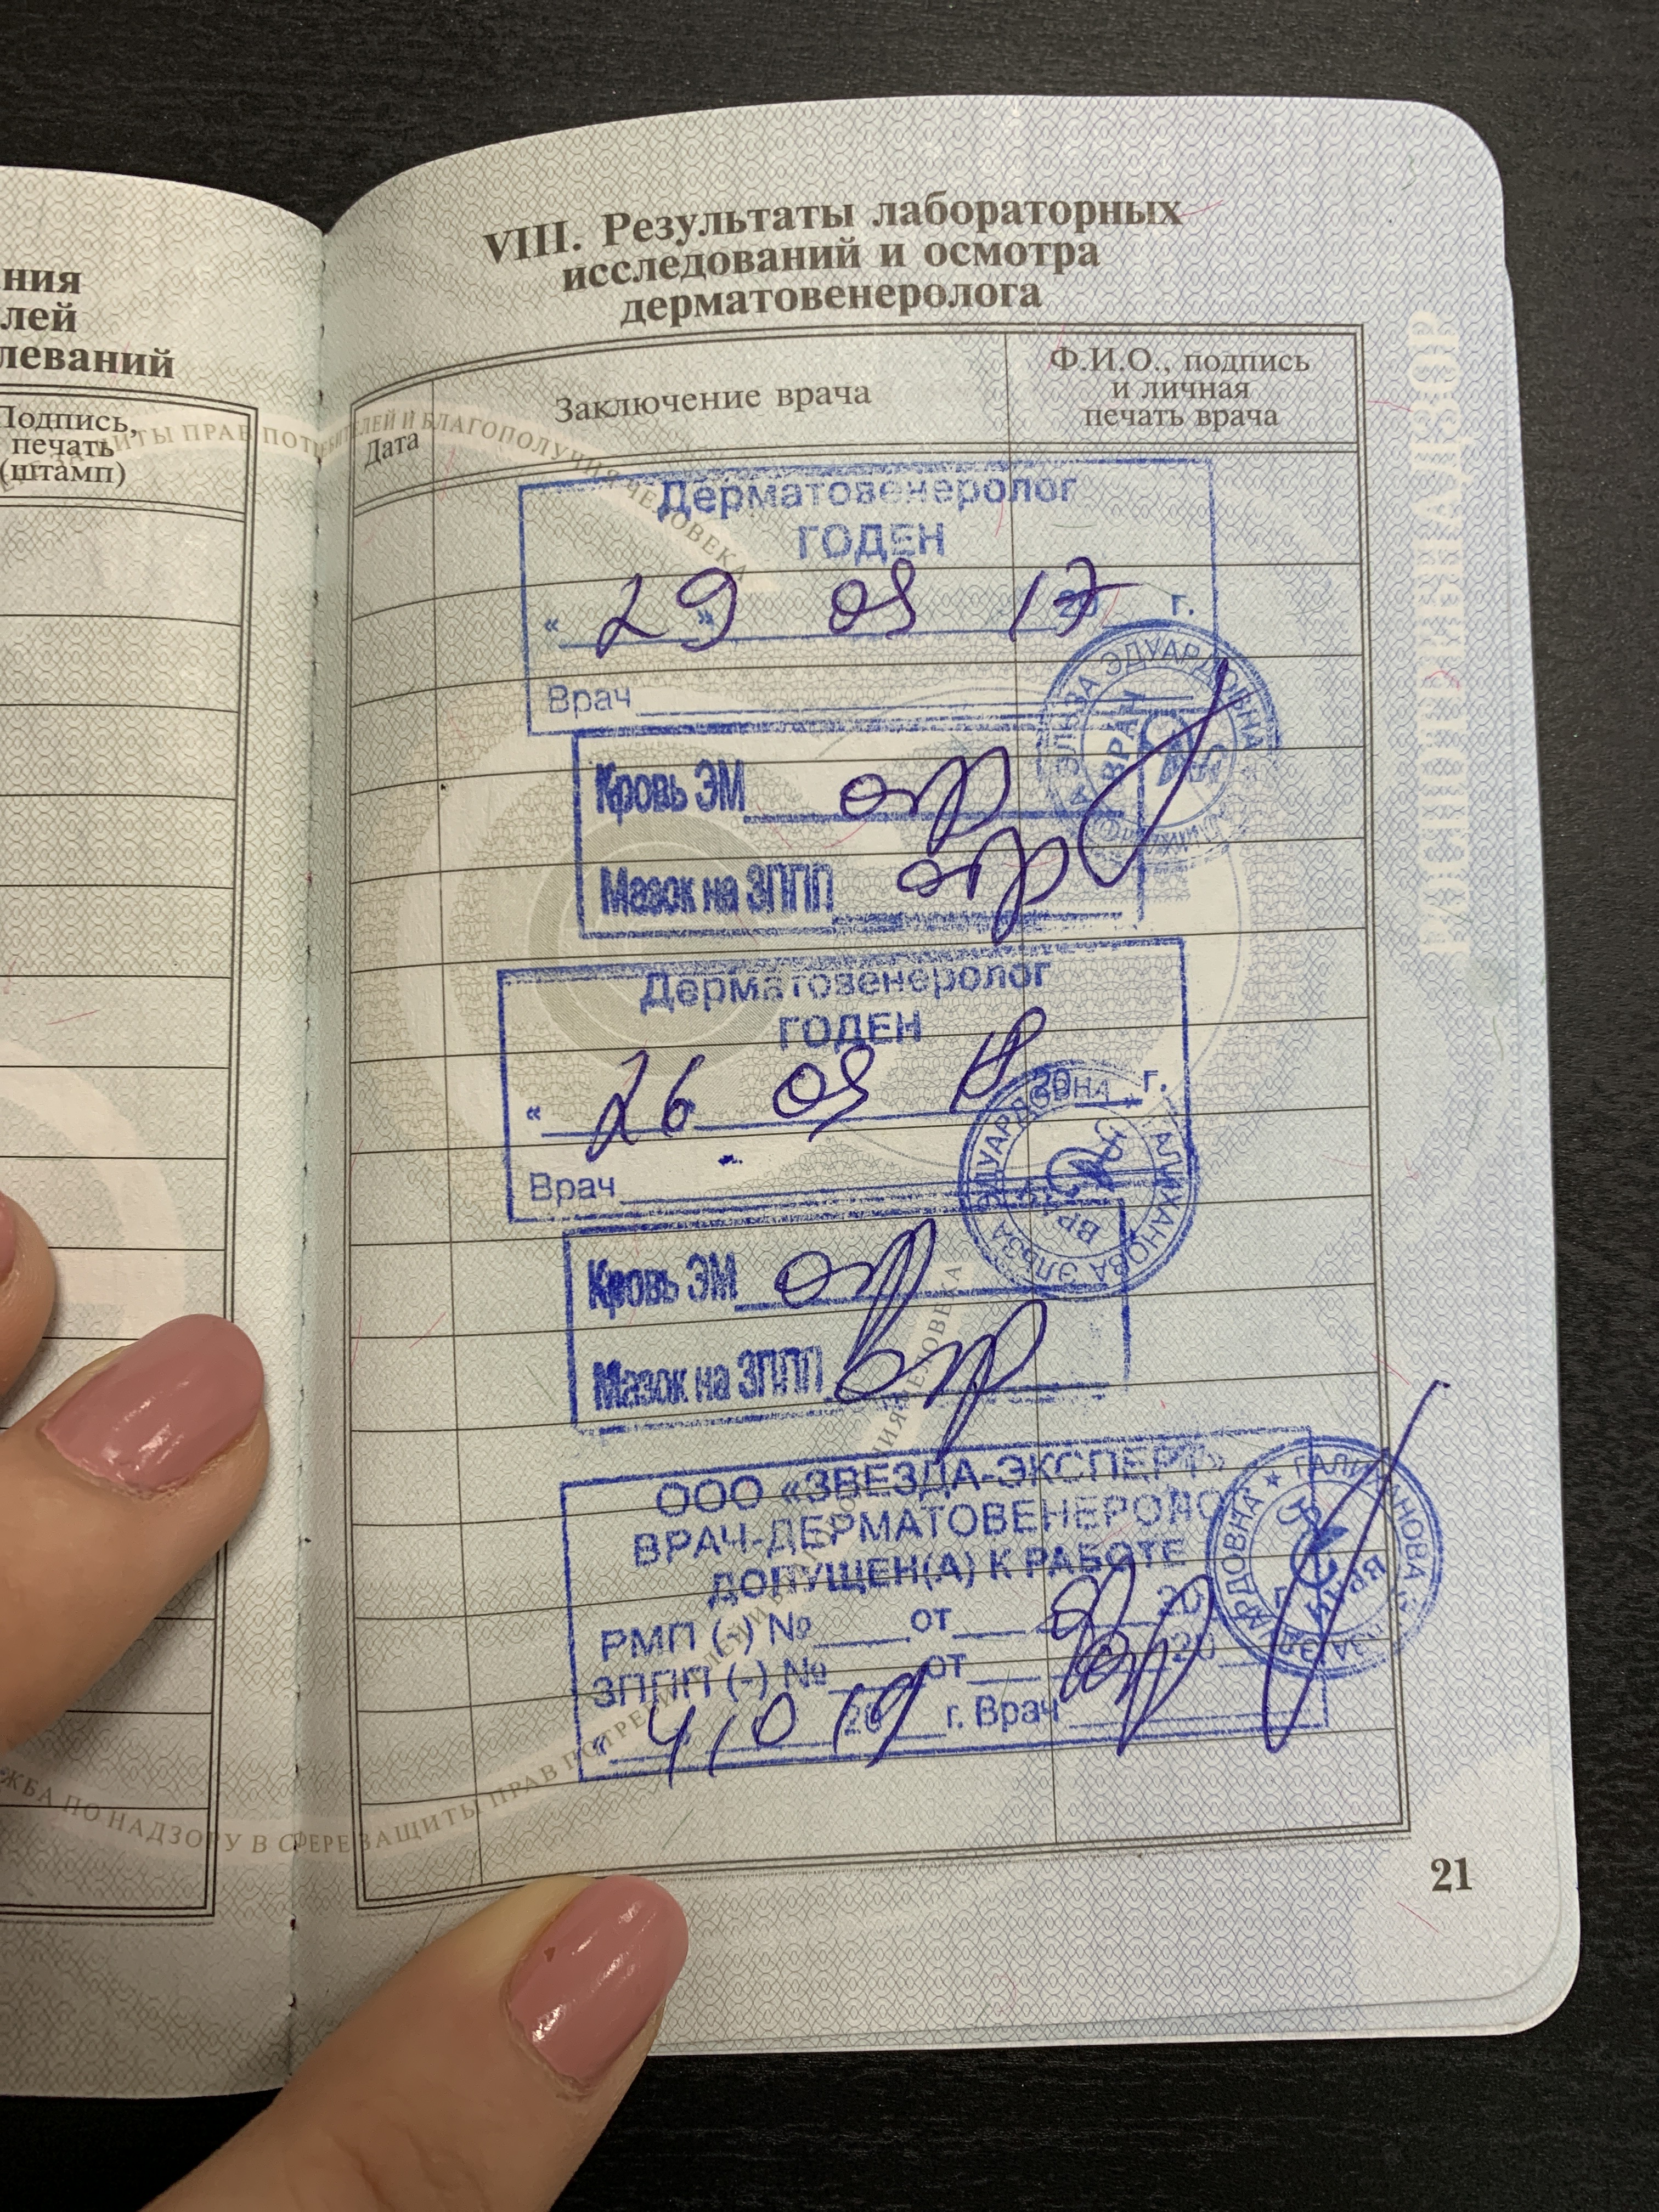 ния
лей
леваний
Подпись,
печать
(штамп)
VIII. Результаты лабораторных
исследований и осмотра
дерматовенеролога
Дата
Заключение врача
Ф.И.О., подпись
и личная
печать врача
Дерматовенеролог
ГОДЕН
« 29 » 08 17 20 г.
Врач
ЭЛЬЗА ЭДУАРДОВНА
ВРАЧ
Кровь ЭМ отр
Мазок на ЗППП отр
Дерматовенеролог
ГОДЕН
« 26 08 18 20 г.
Врач
ГАЛИХАНОВА ЭЛЬЗА ЭДУАРДОВНА
ВРАЧ
Кровь ЭМ отр
Мазок на ЗППП отр
ООО «ЗВЕЗДА-ЭКСПЕРТ»
ВРАЧ-ДЕРМАТОВЕНЕРОЛО
ДОПУЩЕН(А) К РАБОТЕ
РМП (-) № от 20
ЗППП (-) № от 20
« 20 19 г. Врач
РОСПОТРЕБНАДЗОР
ЖБА ПО НАДЗОРУ В СФЕРЕ ЗАЩИТЫ ПРАВ ПОТРЕБИТЕЛЕЙ И БЛАГОПОЛУЧИЯ ЧЕЛОВЕКА
21